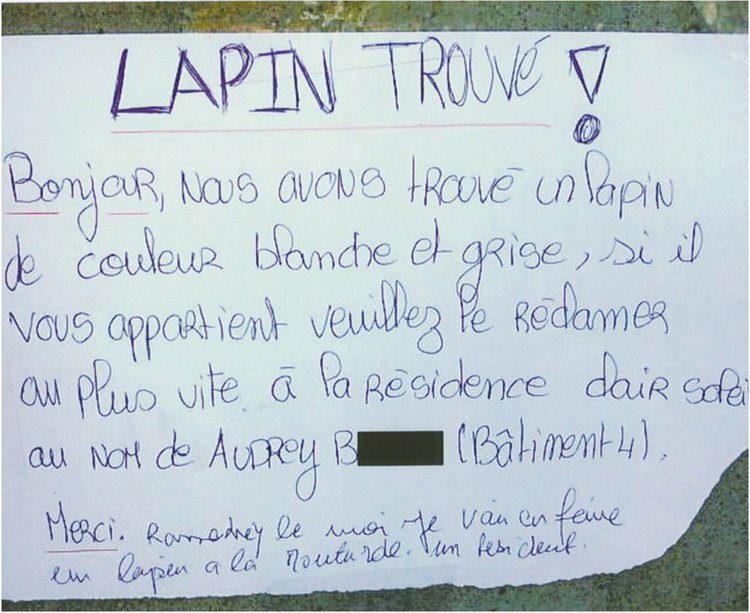 LAPIN TROUVÉ !
Bonjour, nous avons trouvé un lapin
de couleur blanche et grise, si il
vous appartient veuillez le réclamer
au plus vite à la Résidence clair solei
au nom de AUDREY B (Bâtiment 4).
Merci. Ramenez le moi je vais en faire
un lapin a la moutarde. un resident.